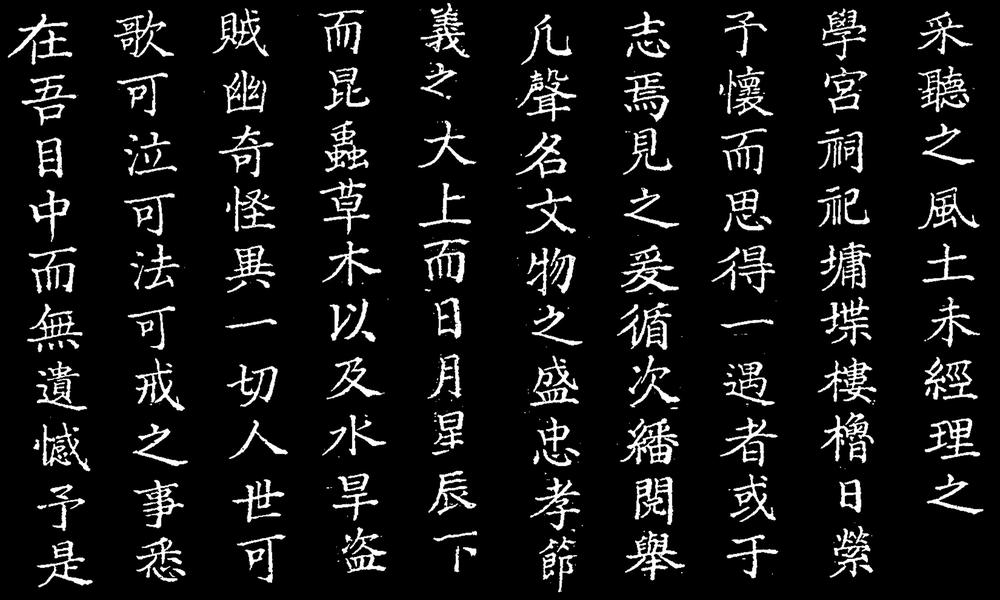 采聽之風土未經理之
學宮祠祀墉堞樓櫓日縈
予懷而思得一遇者或于
志焉見之爰循次繙閱舉
凡聲名文物之盛忠孝節
義之大上而日月星辰下
而昆蟲草木以及水旱盜
賊幽奇怪異一切人世可
歌可泣可法可戒之事悉
在吾目中而無遺憾予是